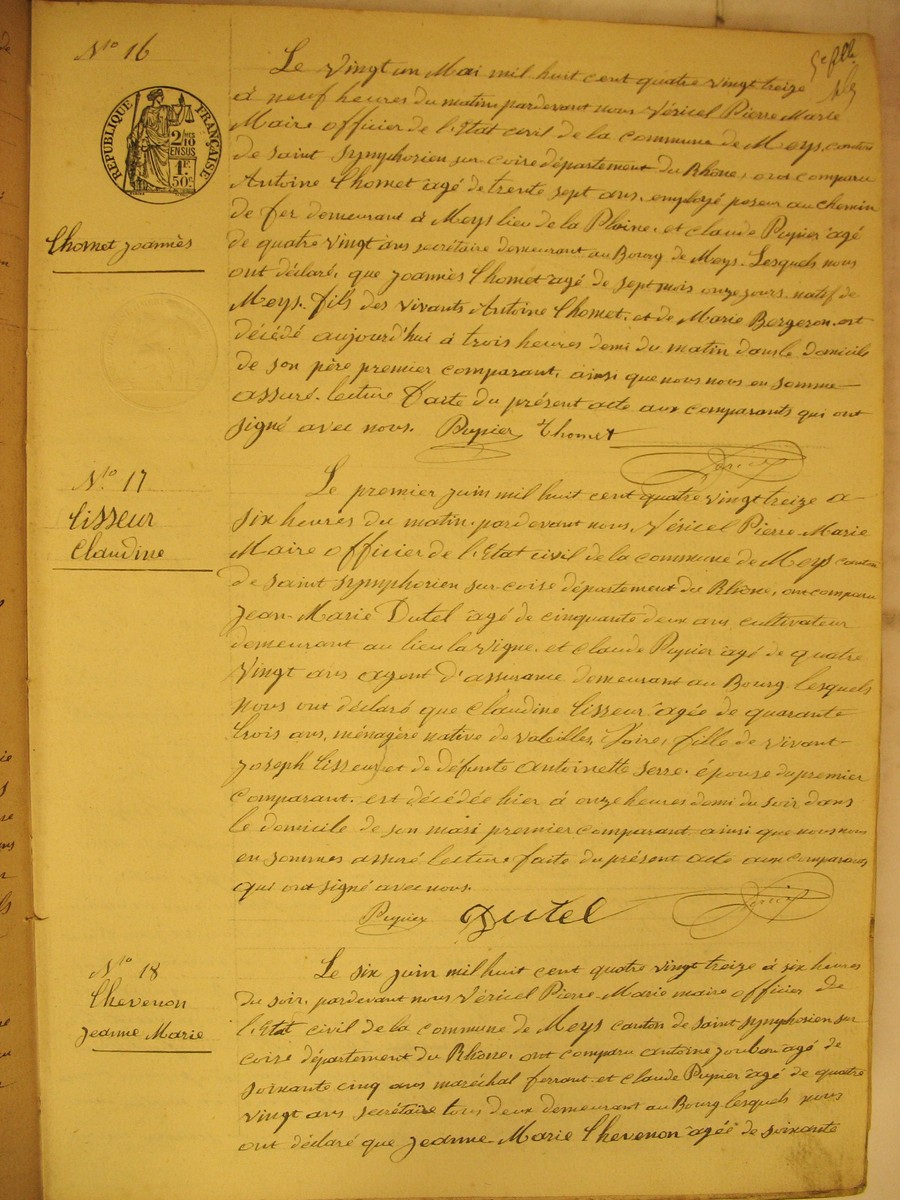 No 16
RÉPUBLIQUE FRANÇAISE
2/10
EN SUS
1F.
50c.
Chomet Joannès
Le vingt un Mai mil huit cent quatre vingt treize
à neuf heures du matin, pardevant nous Véricel Pierre Marie
Maire officier de l'Etat civil de la commune de Meys, canton
de Saint Symphorien sur-coire département du Rhône, ont comparu
Antoine Chomet agé de trente sept ans, employé poseur au chemin
de fer demeurant à Meys lieu de la Plaine, et Claude Pupier agé
de quatre vingt ans secrétaire demeurant au Bourg de Meys. Lesquels nous
ont déclaré, que Joannès Chomet agé de sept mois onze jours, natif de
Meys, fils des vivants Antoine Chomet, et de Marie Bergeron, est
décédé aujourd'hui à trois heures demi du matin dans le domicile
de son père premier comparant, ainsi que nous nous en somme
assuré. Lecture faite du présent acte aux comparants qui ont
signé avec nous. Pupier Chomet
Véricel
No 17
Lisseur
Claudine
Le premier juin mil huit cent quatre vingt treize a
six heures du matin, pardevant nous, Véricel Pierre Marie
Maire officier de l'Etat civil de la commune de Meys canton
de Saint Symphorien sur-coise département du Rhône, ont comparu
Jean-Marie Dutel agé de cinquante deux ans, cultivateur
demeurant au lieu la Vigne, et Claude Pupier agé de quatre
vingt ans agent d'assurance demeurant au Bourg lesquels
nous ont déclaré que Claudine Lisseur agée de quarante
trois ans, ménagère native de Valeilles, Loire, fille de vivant
Joseph Lisseur et de défunte Antoinette Serre, épouse du premier
comparant, est décédée hier à onze heures demi du soir dans
le domicile de son mari premier comparant ainsi que nous nous
en sommes assuré lecture faite du présent acte aux comparants
qui ont signé avec nous.
Pupier Dutel Véricel
No 18
Chevenon
Jeanne Marie
Le six juin mil huit cent quatre vingt treize à six heures
du soir, pardevant nous Véricel Pierre-Marie maire officier de
l'Etat civil de la commune de Meys canton de Saint Symphorien sur
coise département du Rhône, ont comparu Antoine Jouban agé de
soixante cinq ans maréchal ferrant et Claude Pupier agé de quatre
vingt ans secrétaire tous deux demeurant au Bourg lesquels nous
ont déclaré que Jeanne-Marie Chevenon agée de soixante